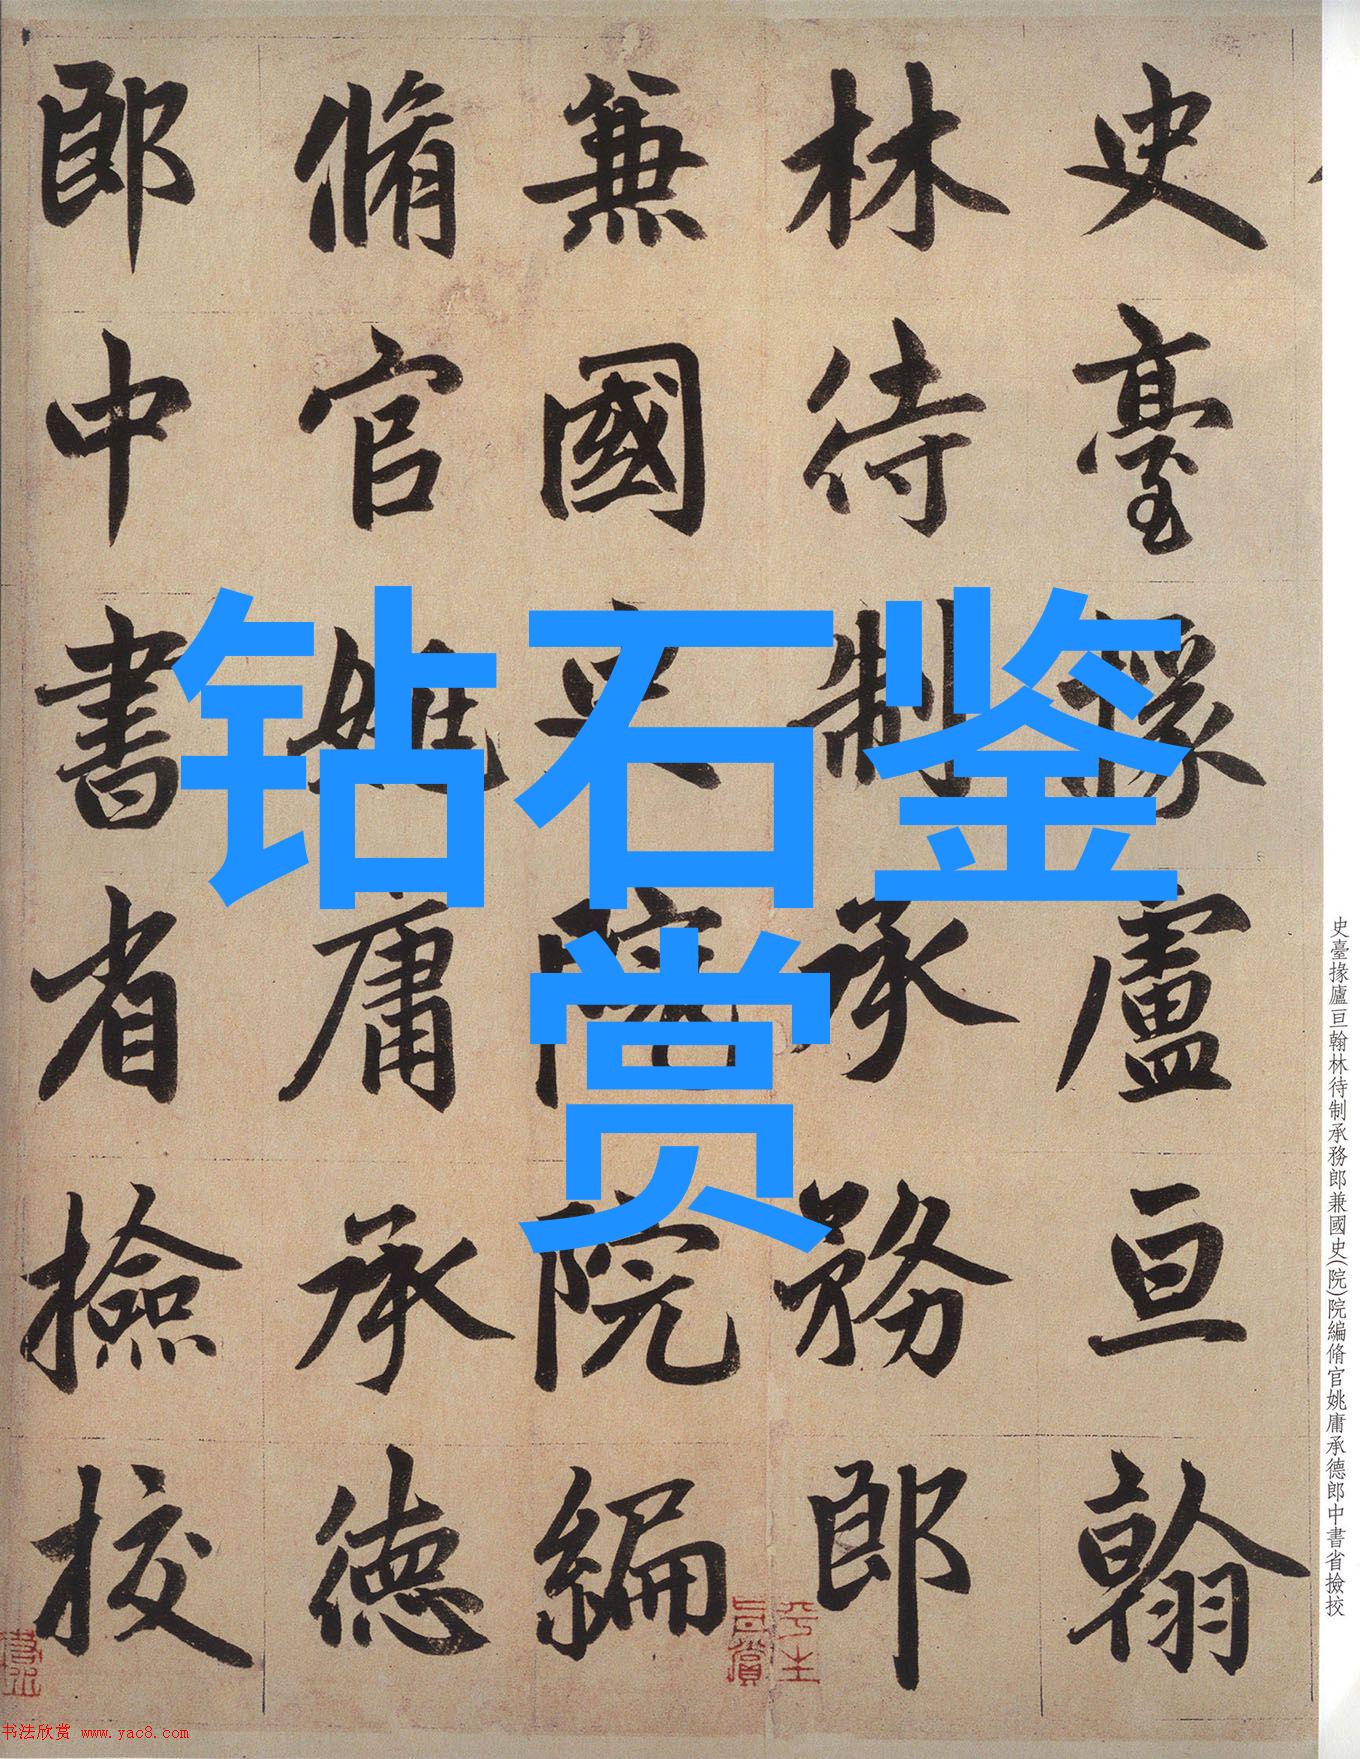 钻石鉴
赏
史臺掾廬亘翰
林待制承務郎
兼國史院院編
脩官姚庸承德
郎中書省撿挍
史臺掾廬亘翰林待制承務郎兼國史(院)院編脩官姚庸承德郎中書省撿挍
书法欣赏 www.yac8.com